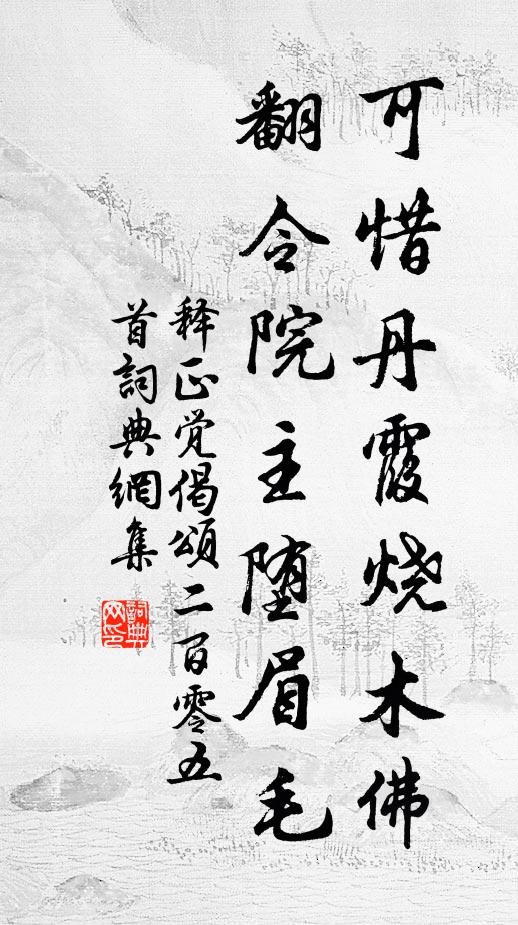 可惜丹霞烧木佛
翻令院主堕眉毛
释正觉偈颂二百零五
首詞典網集
詞典
网印